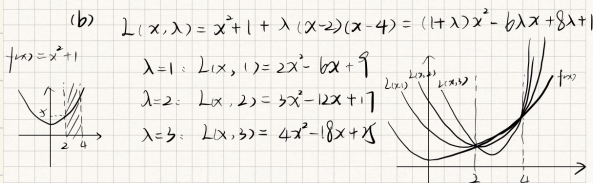 (b) L(x, λ) = x²+1 + λ(x-2)(x-4) = (1+λ)x² - 6λx + 8λ+1
f(x) = x²+1
λ=1: L(x, 1) = 2x² - 6x + 9
λ=2: L(x, 2) = 3x² - 12x + 17
λ=3: L(x, 3) = 4x² - 18x + 25
L(x,1) L(x,2) L(x,3) f(x)
2 4
2 4